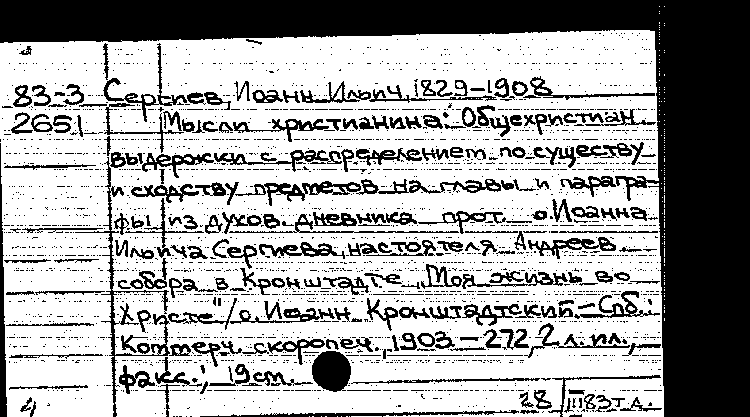 83-3 Сергиев, Иоанн Ильич, 1829-1908
2651 Мысли христианина: Общехристиан.
выдержки с распределением по существу
и сходству предметов на главы и парагра-
фы из духов. дневника прот. о. Иоанна
Ильича Сергиева, настоятеля Андреев.
собора в Кронштадте „Моя жизнь во
Христе"/о. Иоанн Кронштадтский.-Спб.:
Коммерч. скоропеч., 1903-272, 2 л. ил.,
факс.; 19 cm.
28/III 83 т.д.